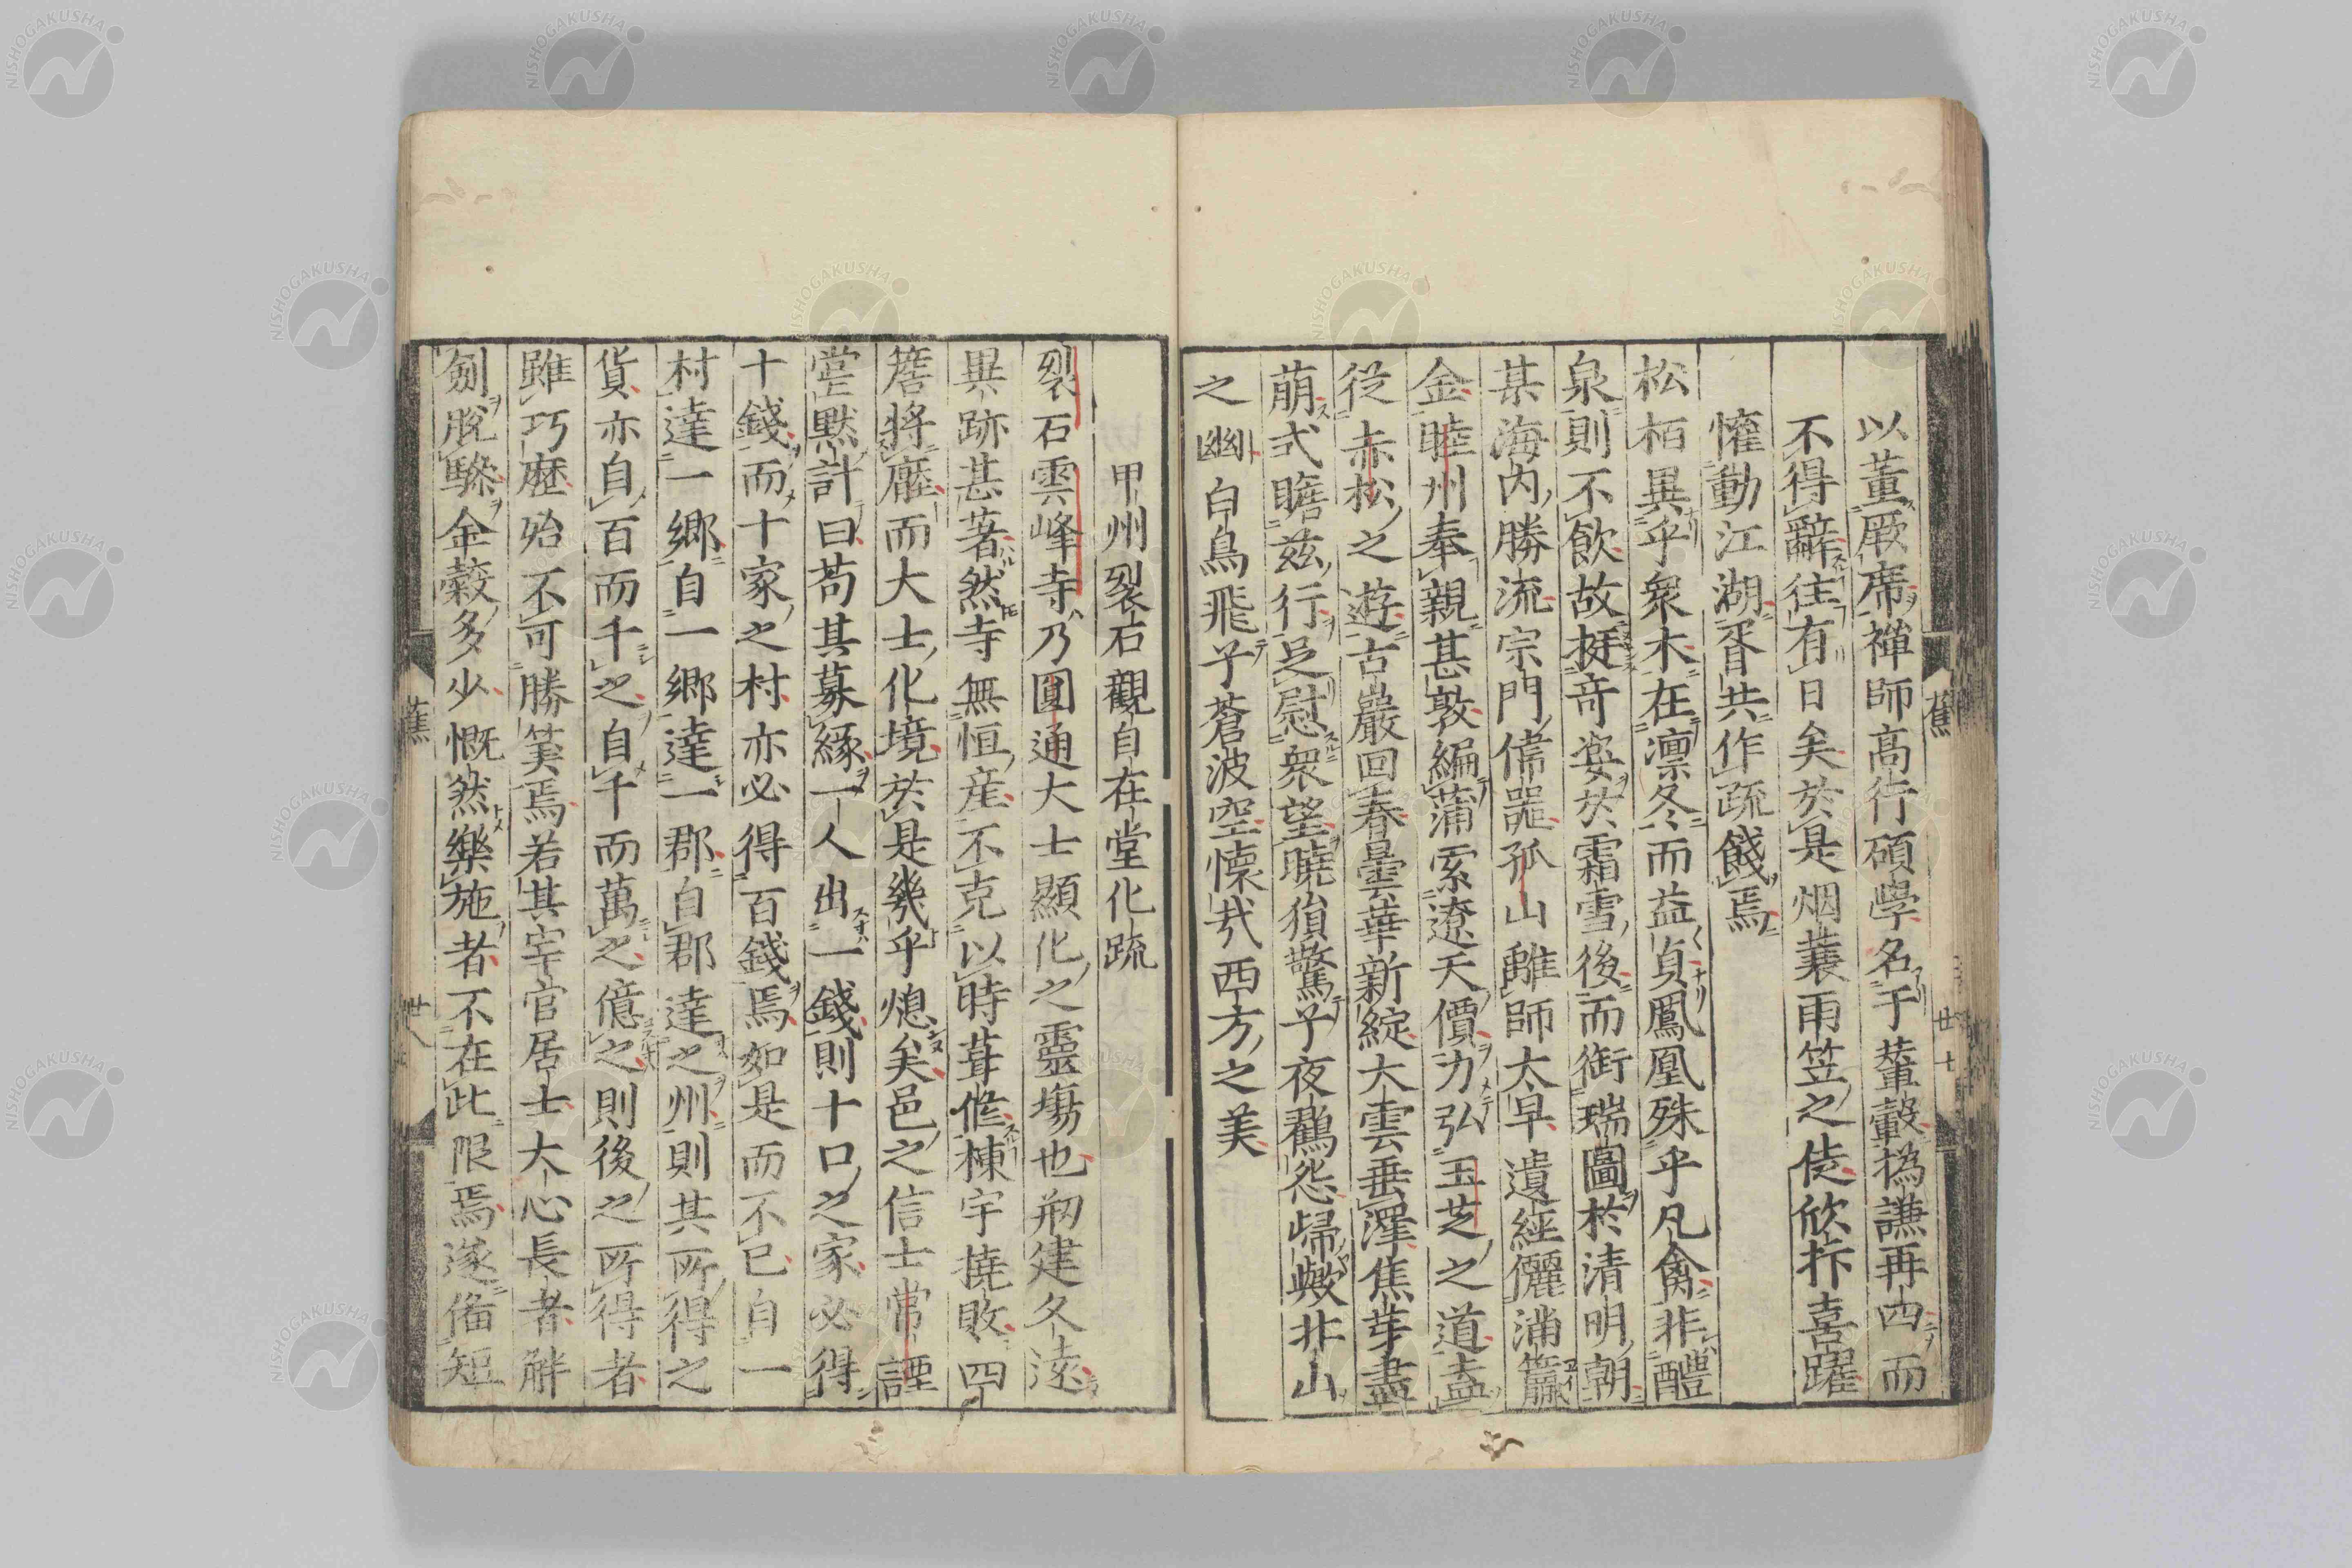 以董厥席禅師高行碩學名于輦轂撝謙再四而
不得辭往有日矣於是烟蓑雨笠之徒欣抃喜躍
懽動江湖胥共作疏餞焉
松栢異乎衆木在凛冬而益貞鳳凰殊乎凡禽非醴
泉則不飲故挺奇姿於霜雪後而銜瑞圖於清明朝
某海内勝流宗門偉噐孤山離師太早遺經儷滿籯
金睦州奉親甚敦編蒲索遼天價力弘玉芝之道盍
従赤松之遊古巖回春曇華新綻大雲垂澤焦芽盡
萠式瞻茲行足慰衆望曉猿驚子夜鶴怨歸歟非山
之幽白鳥飛子蒼波空懐㢤西方之美
甲州裂石觀自在堂化疏
裂石雲峰寺乃圓通大士顯化之靈塲也刱建久遠
異跡甚著然寺無恒産不克以時葺修棟宇撓敗四
簷將壓而大士化境於是幾乎熄矣邑之信士常諲
嘗默計曰苟其募緣一人出一錢則十口之家必得
十錢而十家之村亦必得百錢焉如是而不已自一
村達一郷自一郷達一郡自郡達之州則其所得之
貨亦自百而千之自千而萬之億之則後之所得者
雖巧歷殆不可勝筭焉若其宰官居士大心長者觧
劔脫驂金穀多少慨然樂施者不在此限焉遂俻短
蕉
廿七
蕉
廿八
NISHOGAKUSHA